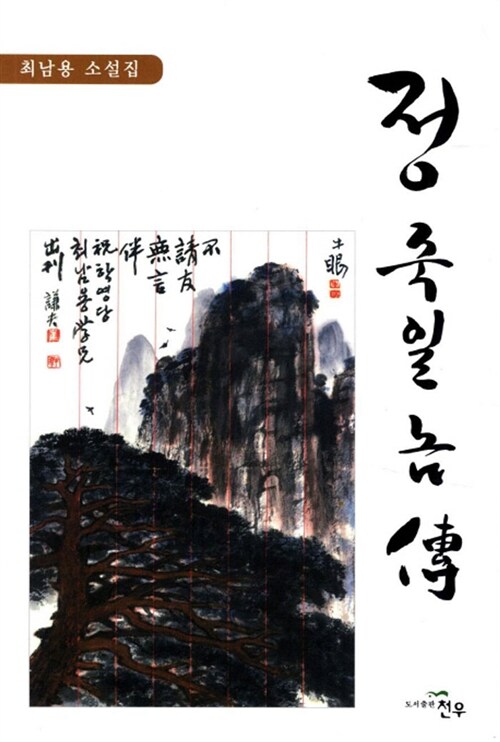 최남용 소설집
정죽일놈傳
斗眼
不
請友
無言
伴
祝 학영당
최남용 学兄
出刊 謙夫
도서출판 천우